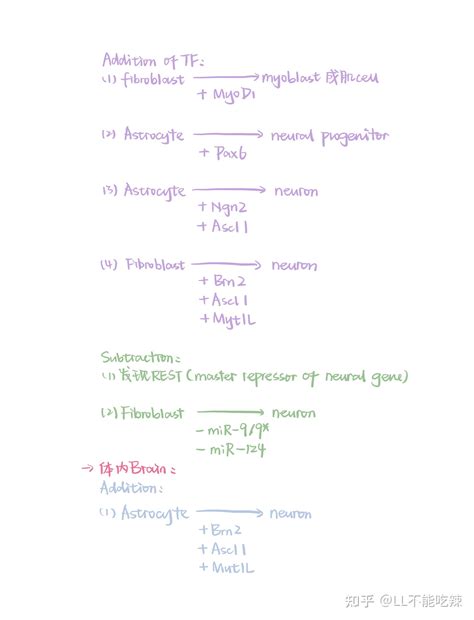 Addition of TF:
(1) fibroblast → myoblast 成肌cell
+ MyoD1
(2) Astrocyte → neural progenitor
+ Pax6
(3) Astrocyte → neuron
+ Ngn2
+ Ascl1
(4) Fibroblast → neuron
+ Brn2
+ Ascl1
+ Myt1L
Subtraction:
(1) 发现REST (master repressor of neural gene)
(2) Fibroblast → neuron
- miR-9/9*
- miR-124
→ 体内Brain:
Addition:
(1) Astrocyte → neuron
+ Brn2
+ Ascl1
+ Mut1L
知乎 @LL不能吃辣